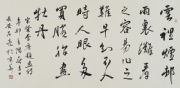 雲裏煙邨
雨裏灘看之
容易作之
難早知不入
時人眼多
買胭脂畫
牡丹